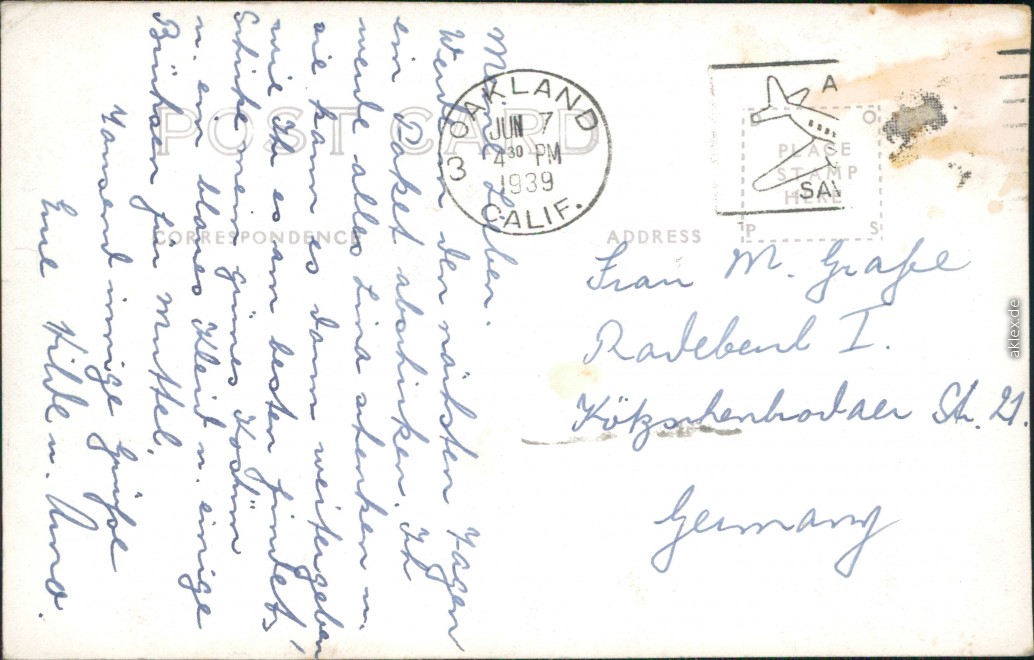 POST CARD
CORRESPONDENCE
ADDRESS
PLACE
STAMP
HERE
P
S
O
OAKLAND
CALIF.
JUN 7
4 30 PM
1939
3
A
SAV
Meine Lieben.
Werde in den nächsten Tagen
ein Paket abschicken. Ich
werde alles Lina schenken u.
sie kann es dann weitergeben
wie Ihr es am besten findet.
Schicke mein grünes Kostüm
u. ein blaues Kleid u. einige
Blüschen für Muttel.
Tausend innige Grüße
Eure Hilde u. Arno.
Frau M. Grafe
Radebeul I.
Kötzschenbrodaer Str. 21.
Germany
aklex.de